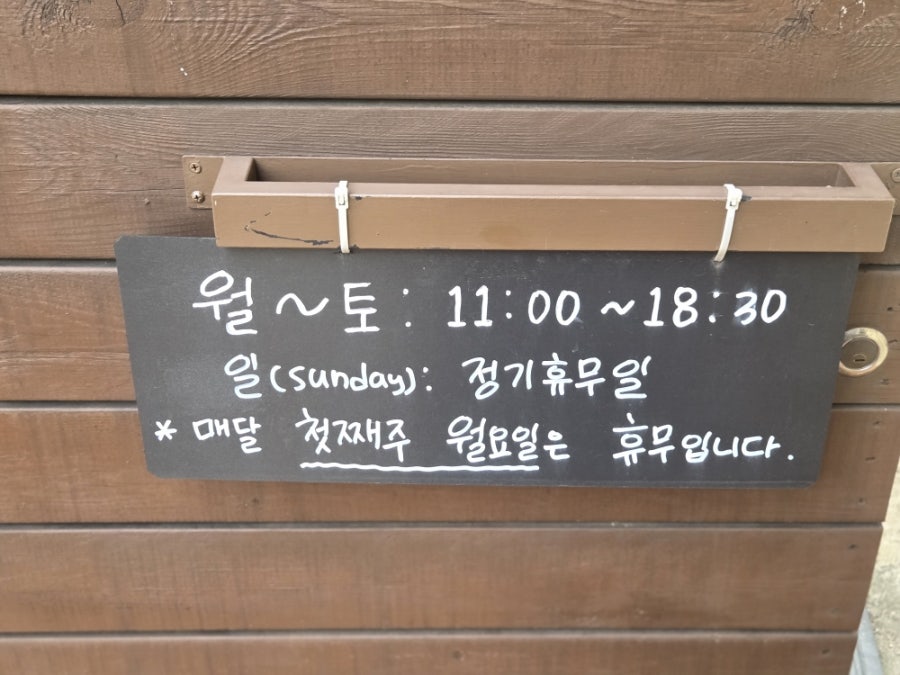 월 ~ 토 : 11:00 ~ 18:30
일(sunday): 정기휴무일
* 매달 첫째주 월요일은 휴무입니다.